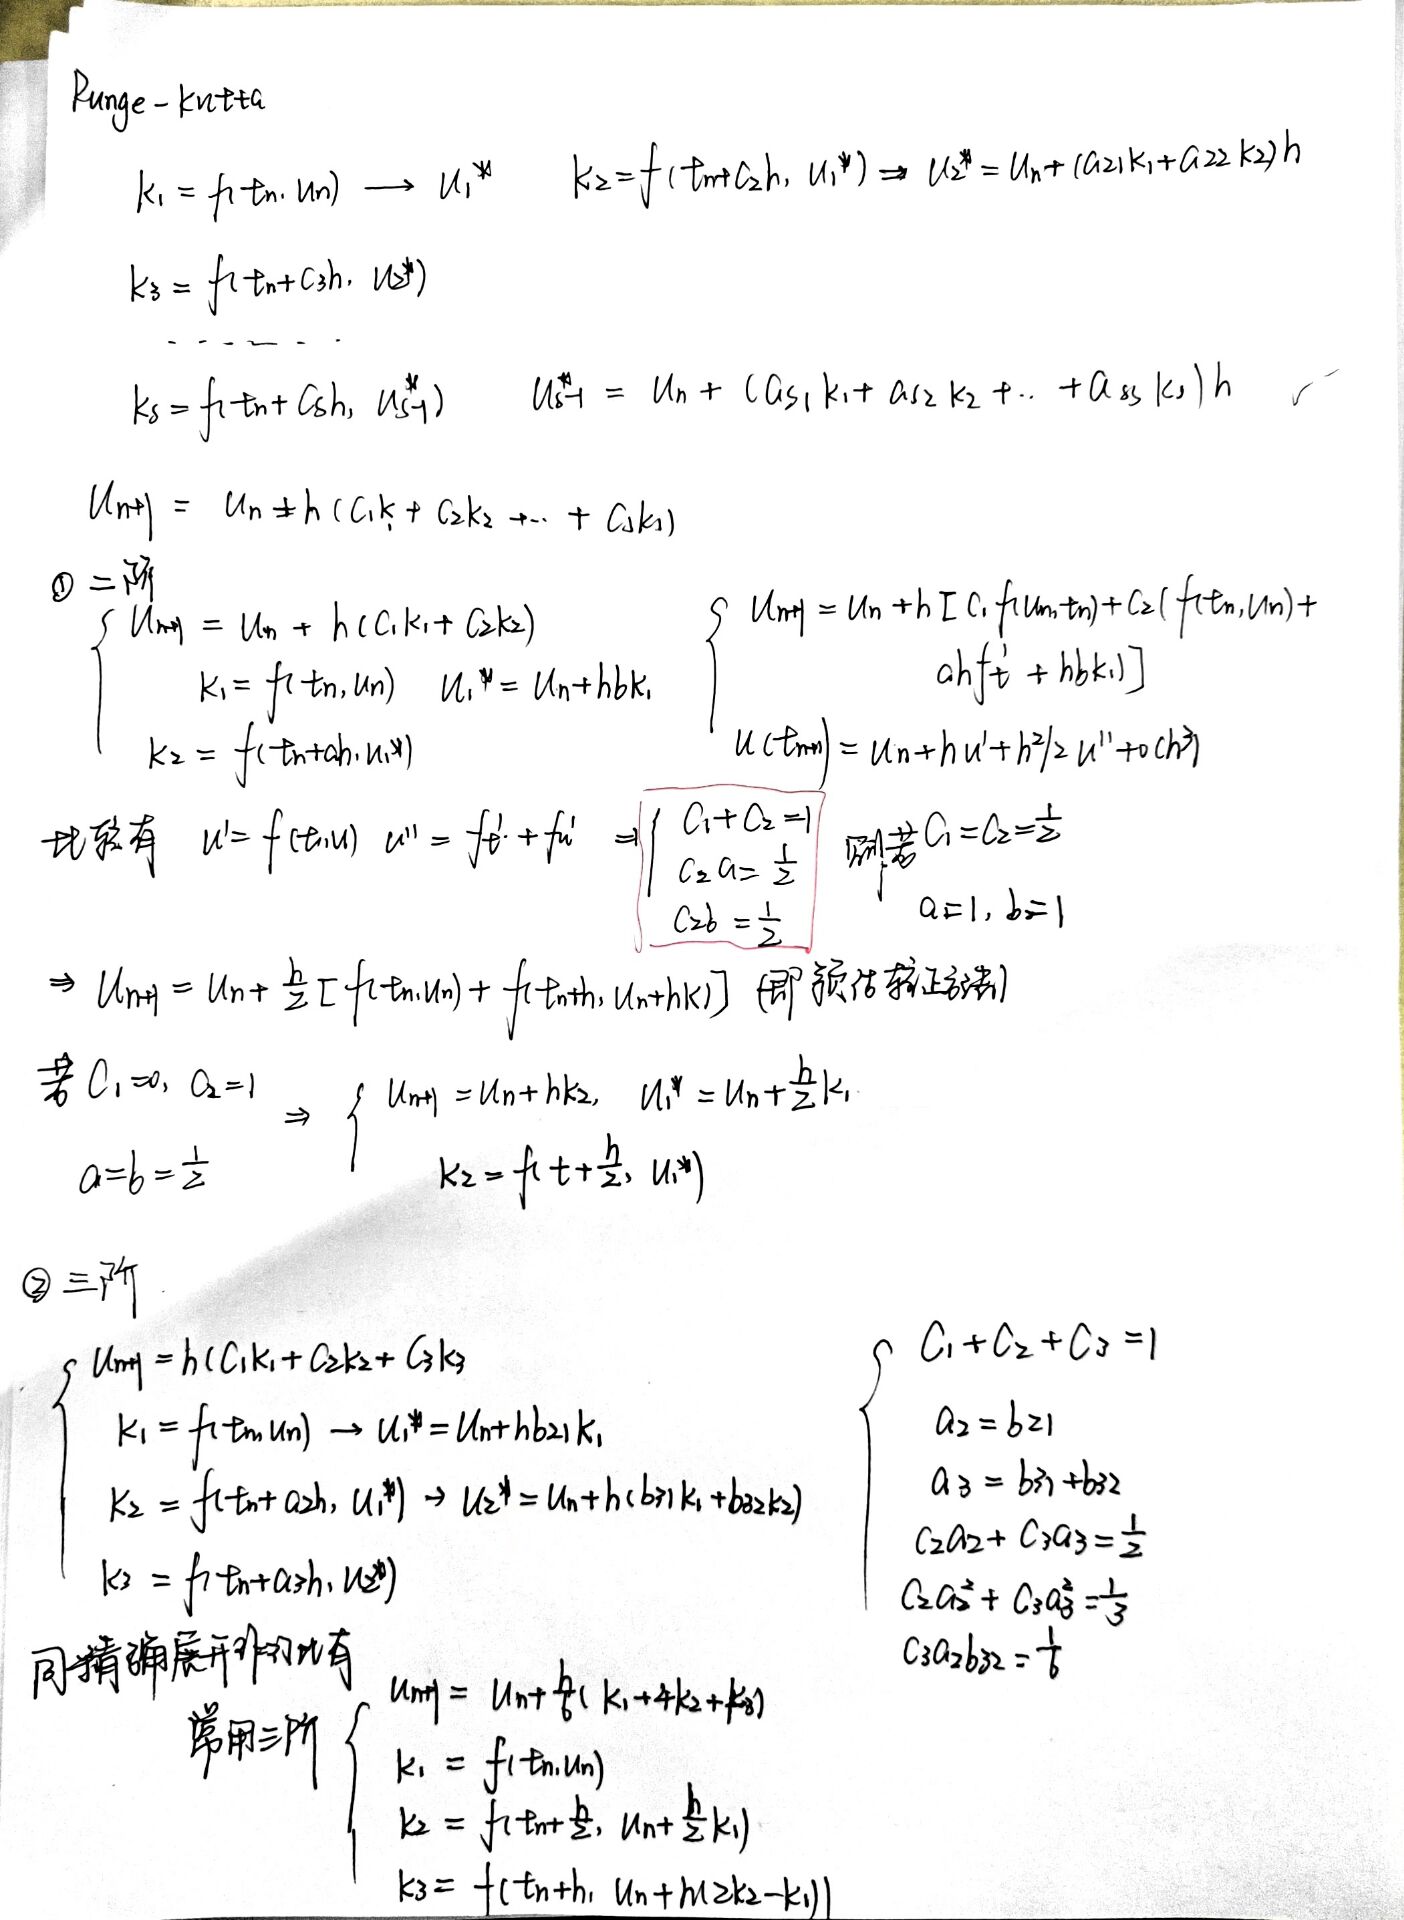 Runge-Kutta
k₁ = f(tₙ, uₙ) → u₁* k₂ = f(tₙ+c₂h, u₁*) ⇒ u₂* = uₙ + (a₂₁k₁ + a₂₂k₂)h
k₃ = f(tₙ+c₃h, u₂*)
- - - - - -
kₛ = f(tₙ+cₛh, uₛ₋₁*) uₛ₋₁* = uₙ + (aₛ₁k₁ + aₛ₂k₂ + ‥ + aₛₛkₛ)h ✓
uₙ₊₁ = uₙ + h(c₁k₁ + c₂k₂ + ‥ + cₛkₛ)
① 二阶
uₙ₊₁ = uₙ + h(c₁k₁ + c₂k₂)
k₁ = f(tₙ, uₙ) u₁* = uₙ + hbk₁
k₂ = f(tₙ+ah, u₁*)
uₙ₊₁ = uₙ + h[c₁f(uₙ, tₙ) + c₂(f(tₙ, uₙ) +
ahf't + hbk₁)]
u(tₙ₊₁) = uₙ + hu' + h²/2 u'' + o(h³)
比较有 u' = f(t, u) u'' = f't + f'u ⇒ { c₁ + c₂ = 1
c₂a = 1/2
c₂b = 1/2
则若 c₁ = c₂ = 1/2
a = 1, b = 1
⇒ uₙ₊₁ = uₙ + h/2 [f(tₙ, uₙ) + f(tₙ+h, uₙ+hk₁)] (即预估校正方法)
若 c₁ = 0, c₂ = 1
a = b = 1/2
⇒ { uₙ₊₁ = uₙ + hk₂, u₁* = uₙ + h/2 k₁
k₂ = f(t + h/2, u₁*)
② 三阶
uₙ₊₁ = h(c₁k₁ + c₂k₂ + c₃k₃
k₁ = f(tₙ, uₙ) → u₁* = uₙ + hb₂₁k₁
k₂ = f(tₙ+a₂h, u₁*) → u₂* = uₙ + h(b₃₁k₁ + b₃₂k₂)
k₃ = f(tₙ+a₃h, u₂*)
c₁ + c₂ + c₃ = 1
a₂ = b₂₁
a₃ = b₃₁ + b₃₂
c₂a₂ + c₃a₃ = 1/2
c₂a₂² + c₃a₃² = 1/3
c₃a₂b₃₂ = 1/6
同精确展开作对比有
常用三阶
uₙ₊₁ = uₙ + h/6 (k₁ + 4k₂ + k₃)
k₁ = f(tₙ, uₙ)
k₂ = f(tₙ + h/2, uₙ + h/2 k₁)
k₃ = f(tₙ+h, uₙ + h(2k₂ - k₁))